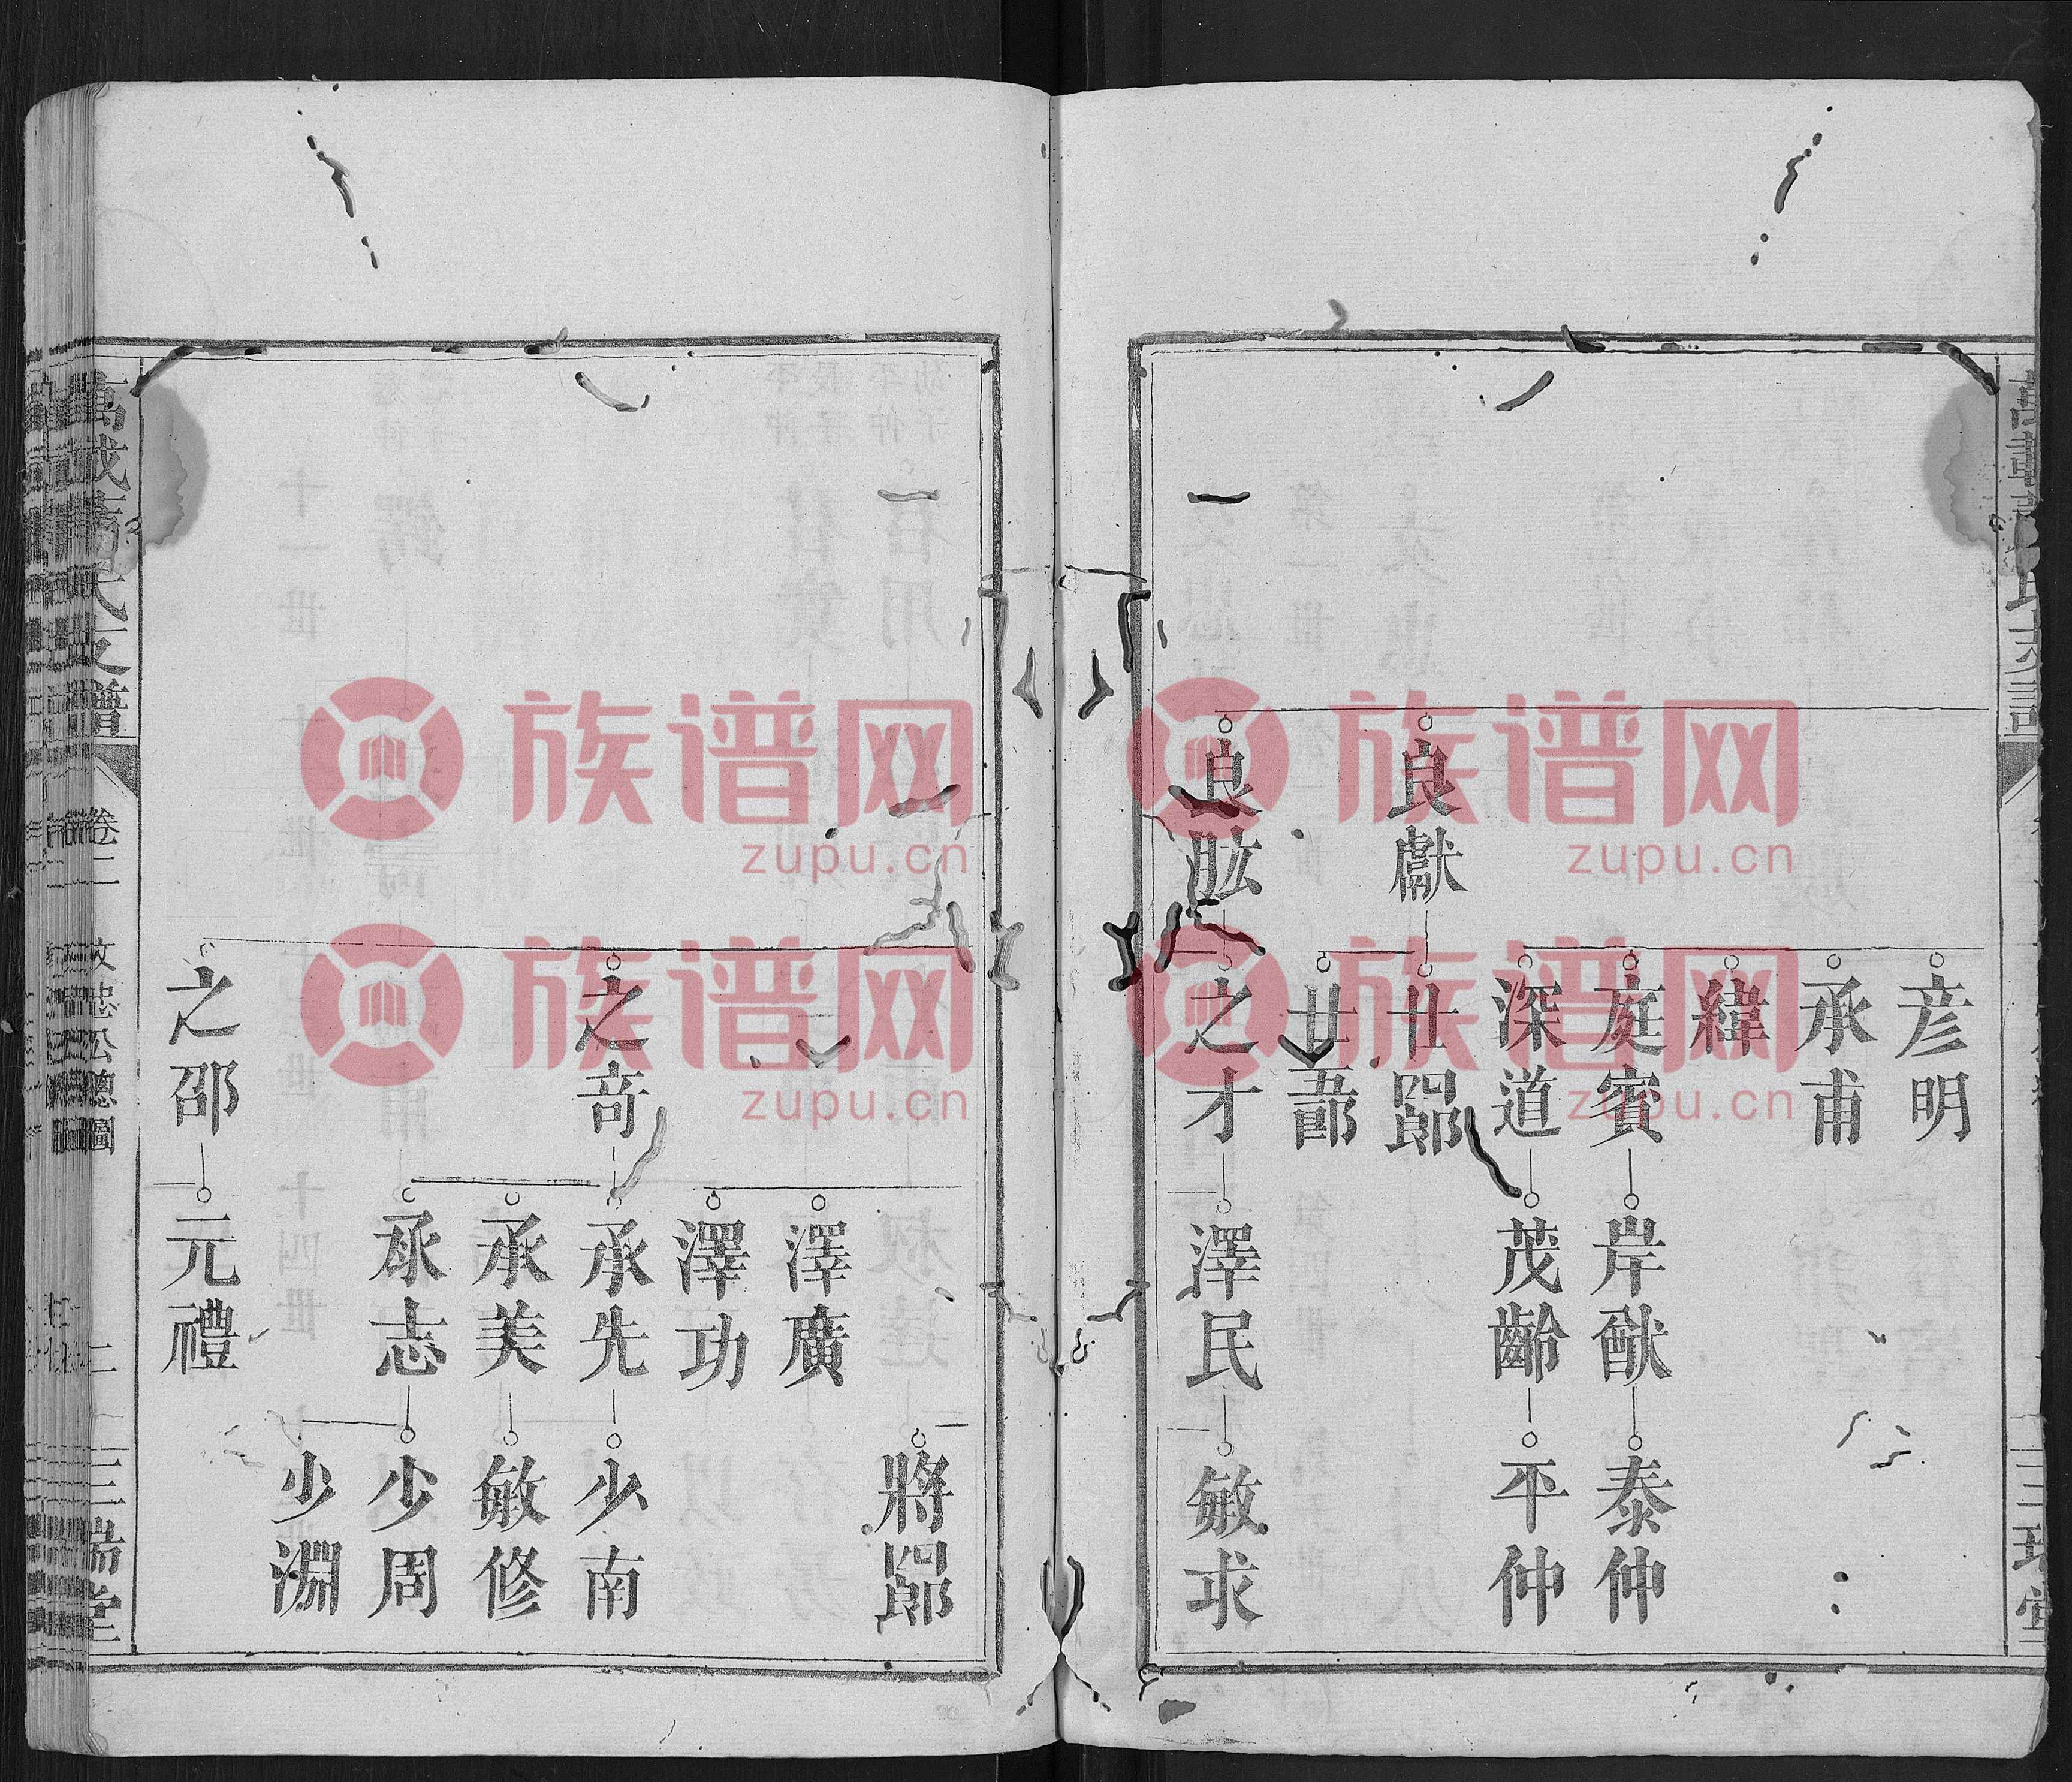 彦明
承甫
緯
庭賓 岸猷 泰仲
深道 茂齡 平仲
良獻 廿
廿
良肱 之才 澤民 敏求
將
澤廣
澤功
之奇 承先 少南
承美 敏修
承志 少周
少淵
之邵 元禮
卷二 文忠公總圖 二
三瑞堂
族谱网
zupu.cn
族谱网
zupu.cn
族谱网
zupu.cn
族谱网
zupu.cn